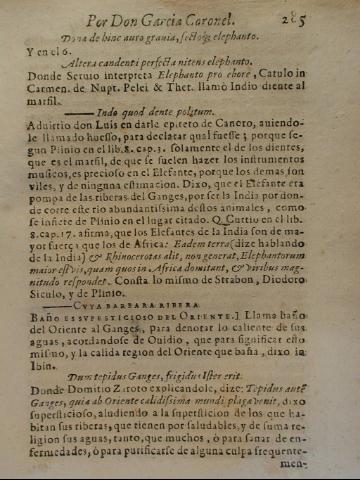 Por Don Garcia Coronel. 285
Dona de hinc auro grauia, sectoq; elephanto.
Y en el 6.
Altera candenti perfecta nitens elephanto.
Donde Seruio interpreta Elephanto pro ebore, Catulo in
Carmen. de Nupt. Pelei & Thet. llamò Indio diente al
marfil.
Indo quod dente politum.
Aduirtio don Luis en darle epiteto de Canoro, auiendo-
le llamado huesso, para declarar qual fuesse; porque se-
gun Plinio en el lib. 8. cap. 3. solamente el de los dientes,
que es el marfil, de que se suelen hazer los instrumentos
musicos, es precioso en el Elefante, porque los demas son
viles, y de ninguna estimacion. Dixo, que el Elefante era
pompa de las riberas del Ganges, por ser la India por don-
de corre este rio abundantissima destos animales, como
se infiere de Plinio en el lugar citado. Q. Curtio en el lib.
8. cap. 17. afirma, que los Elefantes de la India son de ma-
yor fuerça que los de Africa: Eadem terra (dize hablando
de la India) & Rhinocerotas alit, non generat, Elephantorum
maior est vis, quam quos in Africa domitant, & viribus mag-
nitudo respondet. Consta lo mismo de Strabon, Diodoro
Siculo, y de Plinio.
CVYA BARBARA RIBERA
BAÑO ES SVPESTICIOSO DEL ORIENTE.] Llama baño
del Oriente al Ganges, para denotar lo caliente de sus
aguas, acordandose de Ouidio, que para significar esto
mismo, y la calida region del Oriente que baña, dixo in
Ibin.
Dum tepidus Ganges, frigidus Ister erit.
Donde Domitio Zaroto explicandole, dize: Tepidus autē
Ganges, quia ab Oriente calidissima mundi plaga venit, dixo
supersticioso, aludiendo a la supersticion de los que ha-
bitan sus riberas, que tienen por saludables, y de suma re-
ligion sus aguas, tanto, que muchos, ò para sanar de en-
fermedades, ò para purificarse de alguna culpa frequente-
men-